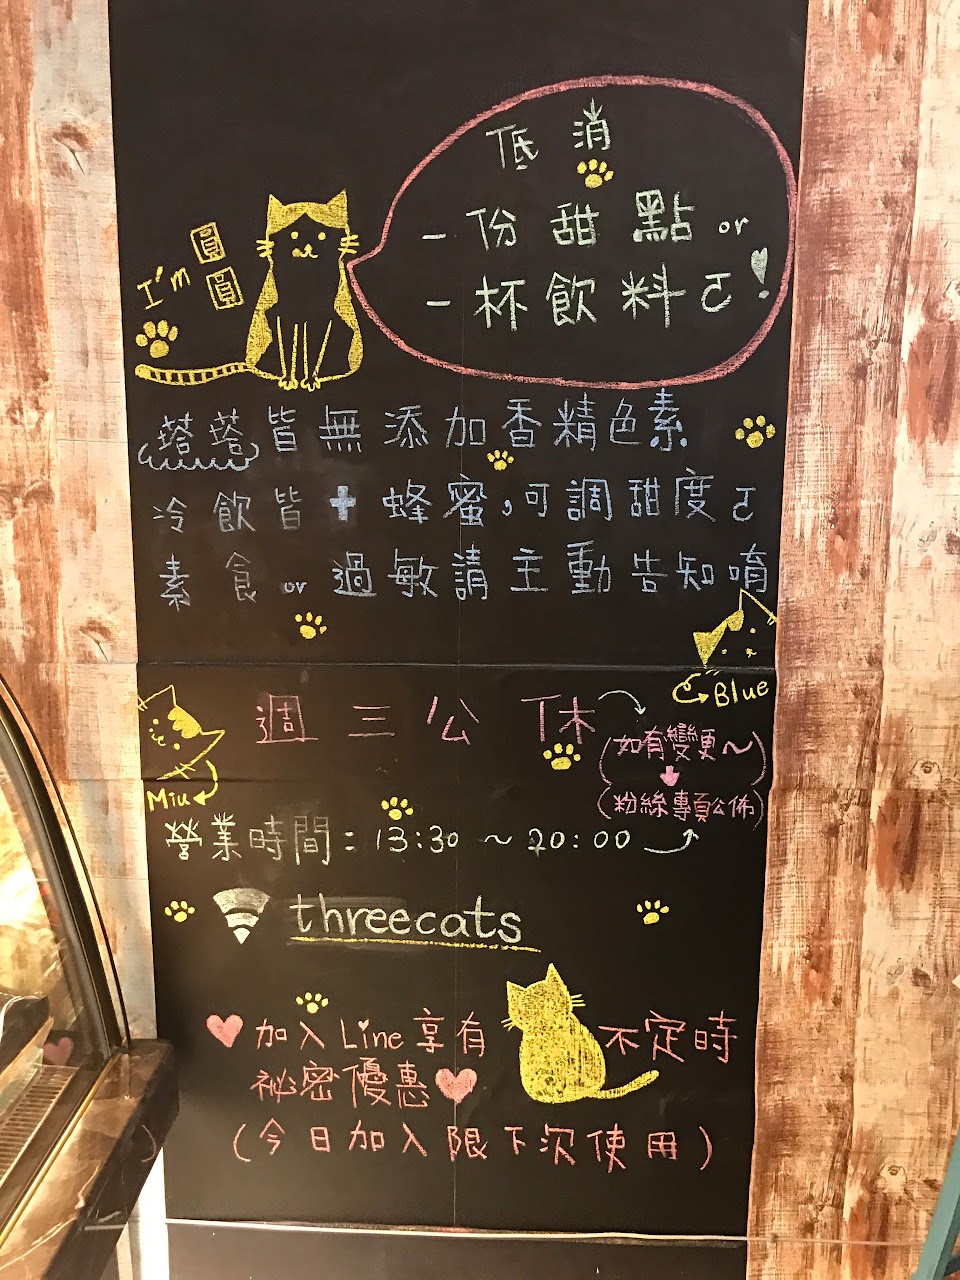 低消
一份甜點 or
一杯飲料ㄛ!
I'm 圓圓
塔塔皆無添加香精色素
冷飲皆+蜂蜜,可調甜度ㄛ
素食 or 過敏請主動告知唷
Blue
週三公休
(如有變更~)
(粉絲專頁公佈)
Miu
營業時間:13:30 ~ 20:00
threecats
加入Line享有 不定時
祕密優惠
(今日加入限下次使用)